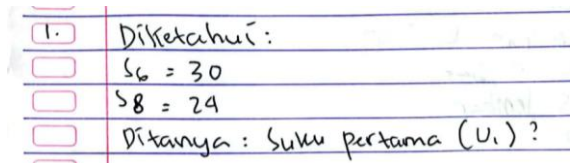 1. Diketahui:
S6 = 30
S8 = 24
Ditanya: Suku pertama (U1)?